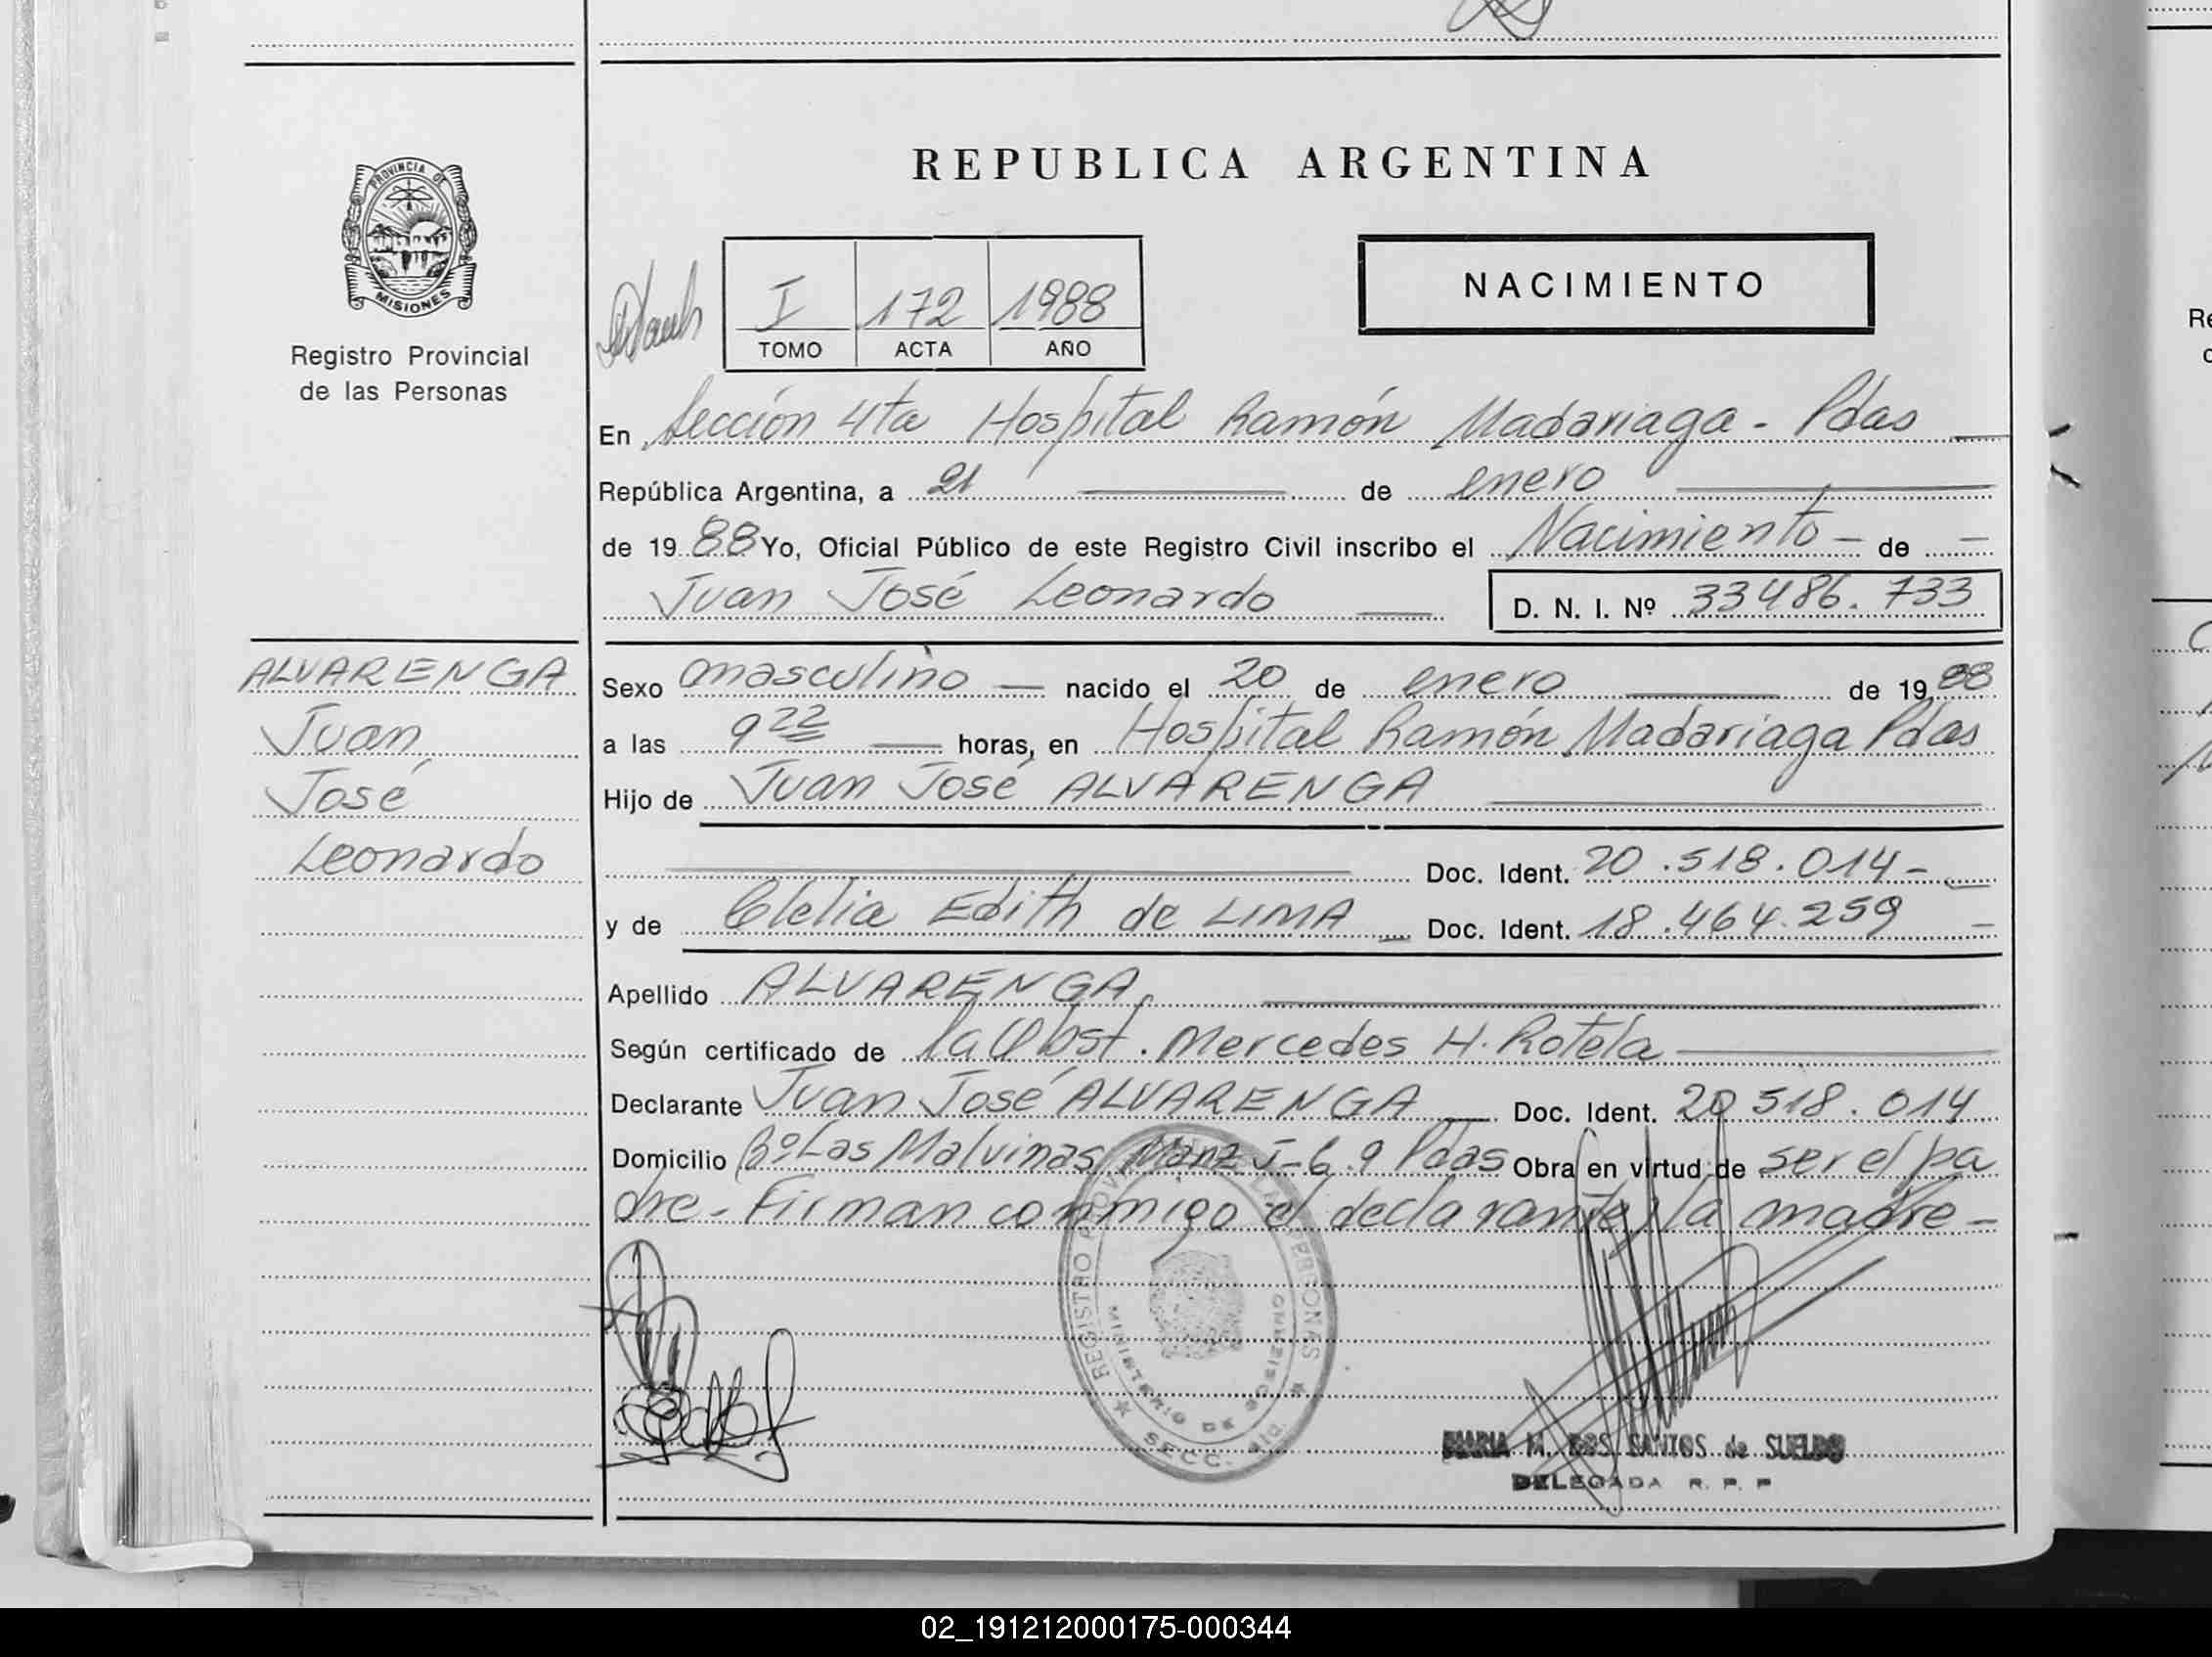 PROVINCIA DE
MISIONES
Registro Provincial
de las Personas
REPUBLICA ARGENTINA
NACIMIENTO
I 172 1988
TOMO ACTA AÑO
En Sección 4ta Hospital Ramón Madariaga - Pdas
República Argentina, a 21 de enero
de 19 88 Yo, Oficial Público de este Registro Civil inscribo el Nacimiento - de -
Juan José Leonardo D. N. I. Nº 33486.733
ALVARENGA
Juan
José
Leonardo
Sexo masculino nacido el 20 de enero de 19 88
a las 9 22 horas, en Hospital Ramón Madariaga Pdas
Hijo de Juan José ALVARENGA
Doc. Ident. 20.518.014-
y de Clelia Edith de LIMA Doc. Ident. 18.464.259 -
Apellido ALVARENGA
Según certificado de la Obst. Mercedes H. Rotela
Declarante Juan José ALVARENGA Doc. Ident. 20 518.014
Domicilio Bº Las Malvinas Manz J-6.9 Pdas Obra en virtud de ser el pa
dre - Firman conmigo el declarante y la madre -
REGISTRO PERSONAS
MINISTERIO DE
SECC.
MARIA M. DOS SANTOS de SUELDO
DELEGADA R. P. P
02_191212000175-000344